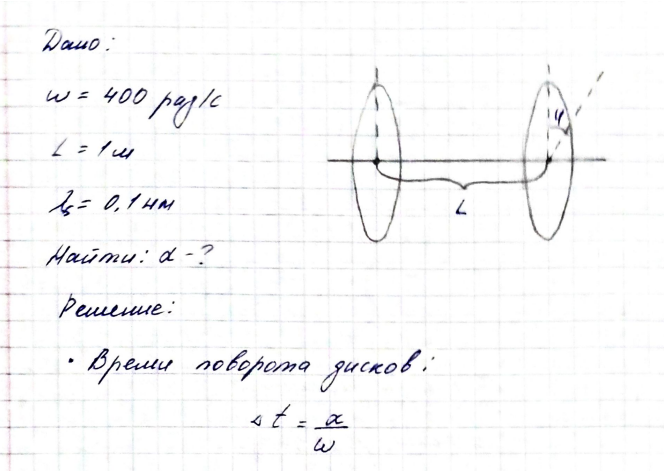 Дано:
ω = 400 рад/с
L = 1 м
λ_Б = 0,1 нм
Найти: α - ?
Решение:
• Время поворота дисков:
Δt = α/ω
φ
L